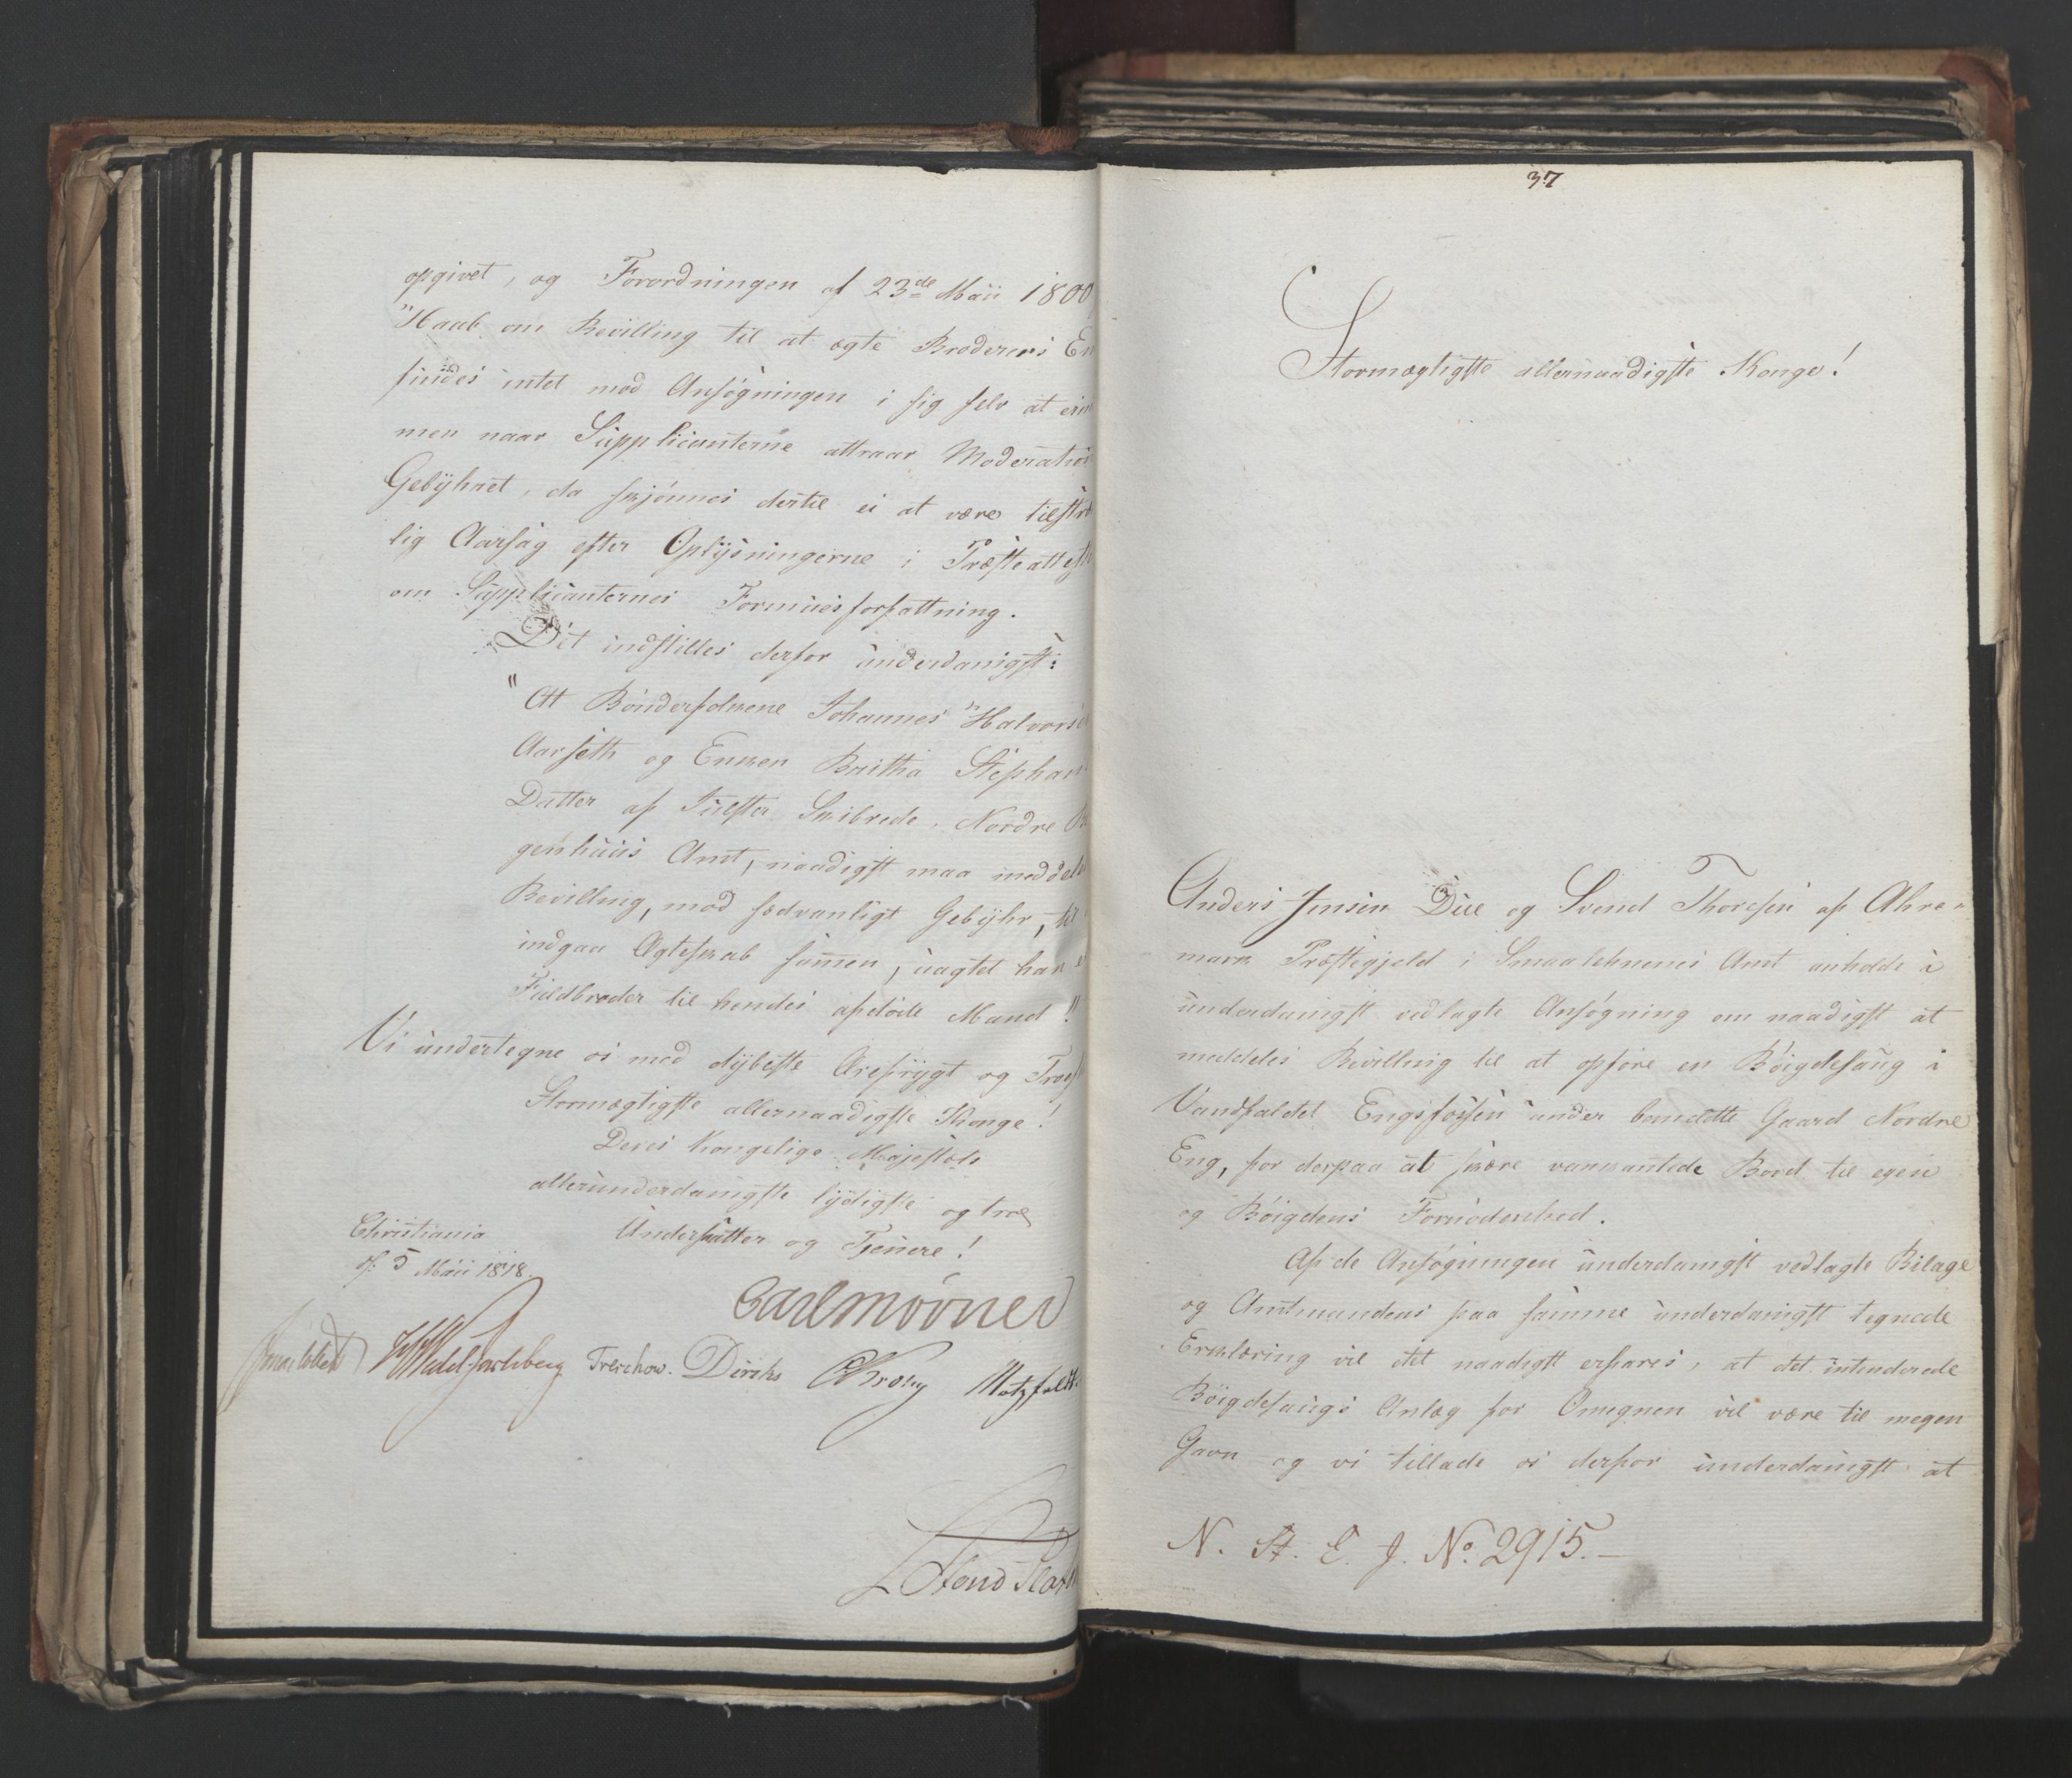 opgivet, og Forordningen af 23de Maii 1800
Haab om Bevilling til at ægte Broderens En
findes intet mod Ansøgningen i sig selv at erin
men naar Supplicanterne attraar Moderation
Gebÿhret, da skjønnes dertil ei at være tilstræ
lig Aarsag efter Oplÿsningerne i Præsteatteste
om Supplicanternes Formuesforfattning.
Det indstilles derfor underdanigst:
"At Bondersønne Johannes Halvorse
Aarseth og Enken Britha Stephan
Datter af Jølster Skibrede, Nordre B
genhuus Amt, naadigst maa meddele
Bevilling, mod sædvanligt Gebÿhr, til
indgaa Ægteskab sammen, uagtet han e
Fuldbroder til hendes afdøde Mand"
Vi undertegne os med dÿbeste Ærefrygt og Troes
Stormægtigste allernaadigste Konge!
Deres Kongelige Majestæts
allerunderdanigste lÿdigste og troe
Undersatter og Tjenere!
Christiania
d. 5 Maii 1818.
Carl Mörner
Sommerhielm HWedel Jarlsberg Treschow. Diriks CKrohg Motzfeldt
37
Stormægtigste allernaadigste Konge!
Anders Jensen Due og Svend Thoresen af Ahre-
mark Præstegjeld i Smaalehnenes Amt anholde i
underdanigst vedlagte Ansøgning om naadigst at
meddeles Bevilling til at opføre en Bøigdesaug i
Vandfaldet Engsfossen under benældte Gaard Nordre
Eng, for derpaa at skære vankantede Bord til egen
og Bøigdens Fornødenhed.
Af de Ansøgningen underdanigst vedlagte Bilage
og Amtmandens paa samme underdanigst tegnede
Erklæring vil det naadigst erfares, at det intenderede
Bøigdesaugs Anlæg for Omegnen vil være til megen
Gavn og vi tillade os derfor underdanigst at
N. St. E. J. No. 2915.-